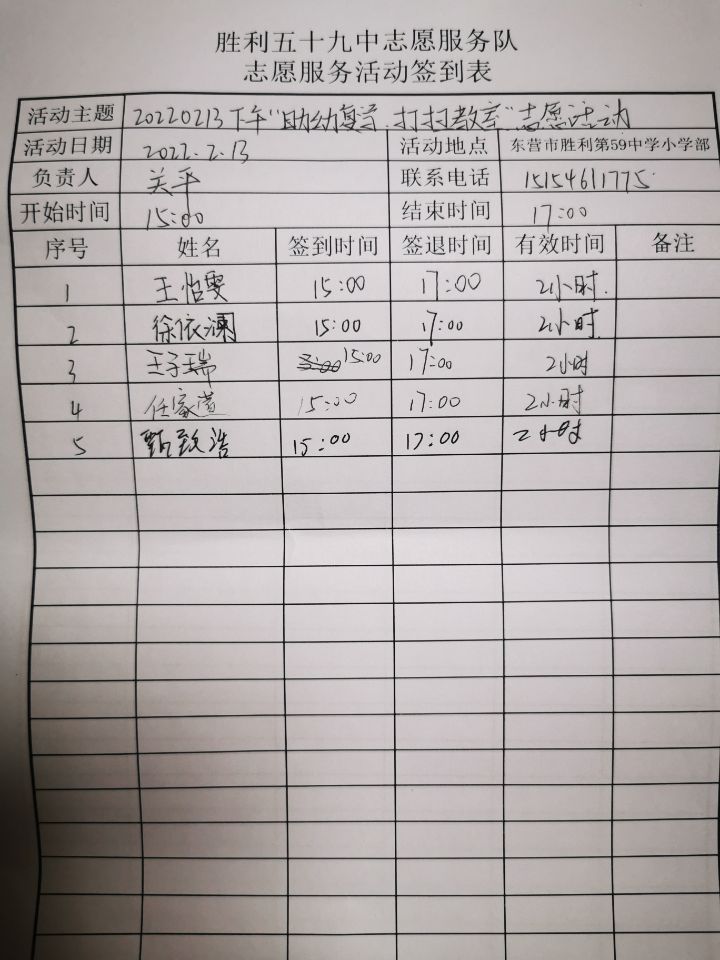 胜利五十九中志愿服务队
志愿服务活动签到表
活动主题 20220213下午"助幼复学,打扫教室"志愿活动
活动日期 2022.2.13 活动地点 东营市胜利第59中学小学部
负责人 关平 联系电话 15154611775
开始时间 15:00 结束时间 17:00
序号 姓名 签到时间 签退时间 有效时间 备注
1 王怡雯 15:00 17:00 2小时.
2 徐依澜 15:00 17:00 2小时
3 王子瑞 15:00 17:00 2小时
4 任家萱 15:00 17:00 2小时
5 甄致浩 15:00 17:00 2小时